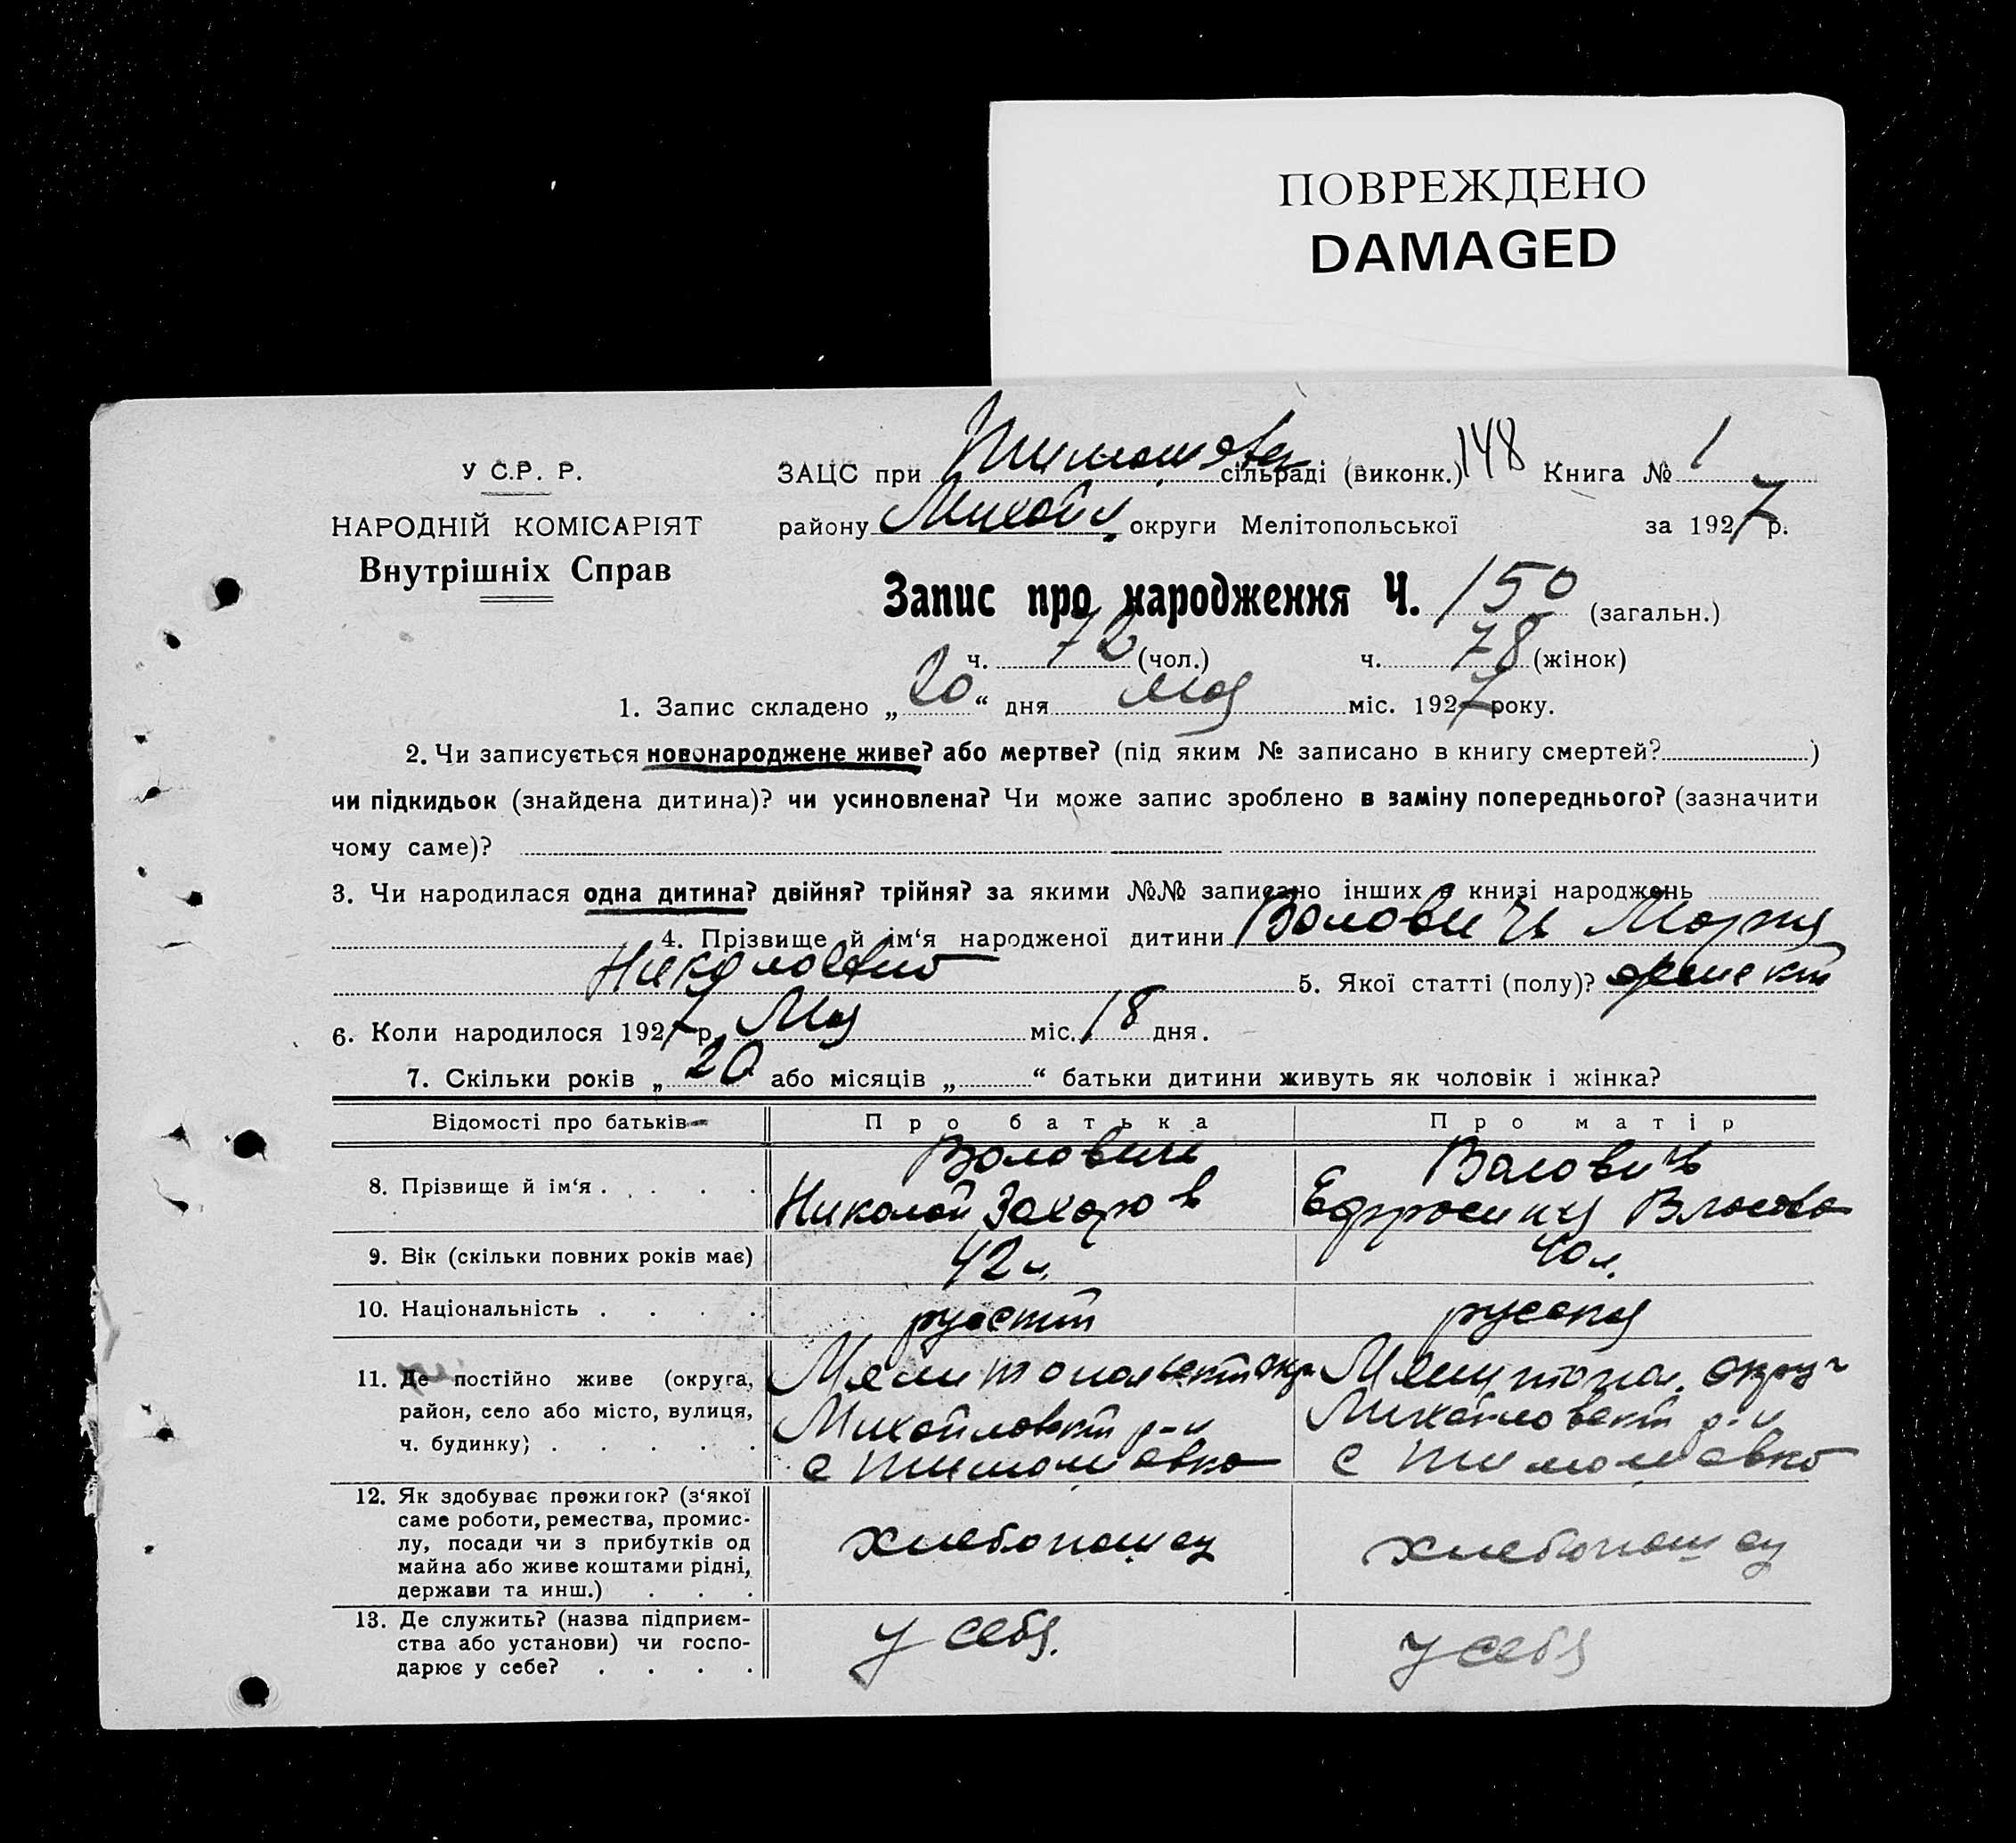 ПОВРЕЖДЕНО
DAMAGED
У С.Р. Р.
НАРОДНІЙ КОМІСАРІЯТ
Внутрішніх Справ
ЗАЦС при Тимошов сільраді (виконк.) 148 Книга № 1
району Михайл округи Мелітопольської за 1927 р.
Запис про народження Ч. 150 (загальн.)
ч. 72 (чол.) ч. 78 (жінок)
1. Запис складено „ 20 “ дня мая міс. 1927 року.
2. Чи записується новонароджене живе? або мертве? (під яким № записано в книгу смертей? )
чи підкидьок (знайдена дитина)? чи усиновлена? Чи може запис зроблено в заміну попереднього? (зазначити
чому саме)?
3. Чи народилася одна дитина? двійня? трійня? за якими №№ записано інших в книзі народжень
4. Прізвище й ім‘я народженої дитини Воловичь Мария
Николаевна 5. Якої статті (полу)? женский
6. Коли народилося 1927 р. Мая міс. 18 дня.
7. Скільки років „ 20 або місяців „ “ батьки дитини живуть як чоловік і жінка?
Відомості про батьків Про батька Про матір
8. Прізвище й ім‘я . . . . . Воловичь Николай Захаров Воловичь Ефросиния Власова
9. Вік (скільки повних років має) 42 л. 40 л.
10. Національність . . . . русский русская
11. Де постійно живе (округа, Мелитопольский окр Мелитопол. округ
район, село або місто, вулиця, Михайловский р-н Михайловский р-н
ч. будинку) . . . . . с Тимошовка с Тимошовка
12. Як здобуває прожиток? (з‘якої
саме роботи, ремества, промис-
лу, посади чи з прибутків од хлебопашец хлебопашец
майна або живе коштами рідні,
держави та инш.) . . .
13. Де служить? (назва підприєм-
ства або установи) чи госпо- у себя. у себя
дарює у себе? . . . .